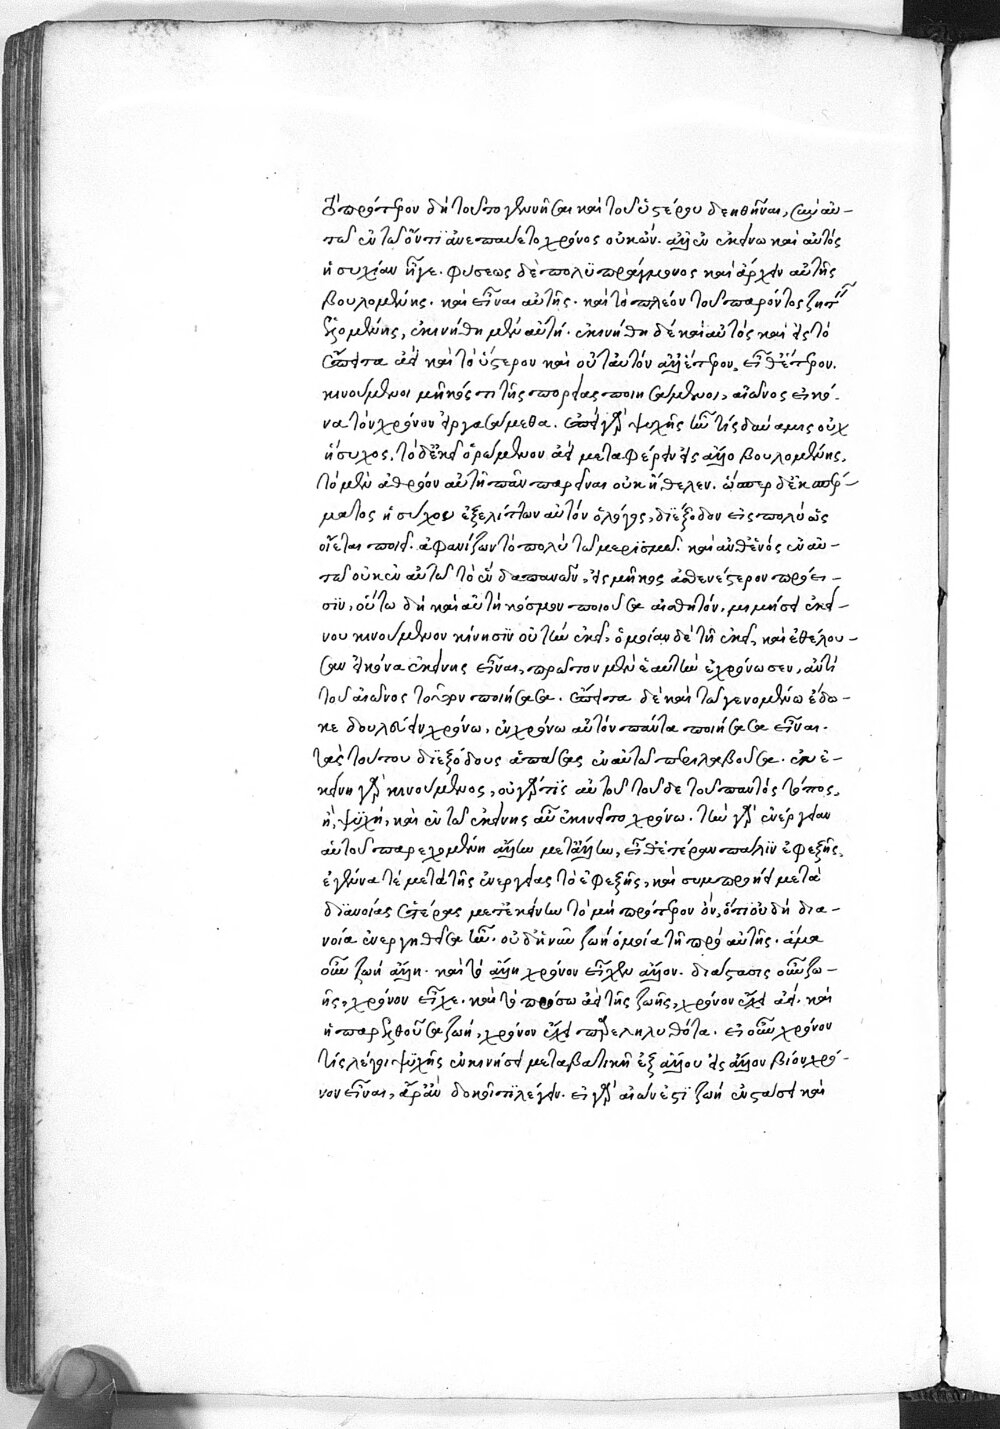 τὸ πρότερον δὴ τοῦτο γεννῆσαι καὶ τοῦ ὑστέρου δεηθῆναι, σὺν αὐ-
τῶ ἐν τῶ ὄντι ἀνεπαύετο χρόνος οὐκ ὤν. ἀλλ' ἐν ἐκείνω καὶ αὐτὸς
ἡσυχίαν ἦγε. φύσεως δὲ πολυπράγμονος καὶ ἄρχειν αὐτῆς
βουλομένης. καὶ εἶναι αὐτῆς. καὶ τὸ πλέον τοῦ παρόντος ζητεῖν
ἑλομένης, ἐκινήθη μὲν αὐτή. ἐκινήθη δὲ καὶ αὐτὸς καὶ εἰς τὸ
ἔπειτα ἀεὶ καὶ τὸ ὕστερον καὶ οὐ ταυτὸν ἀλλ' ἕτερον, εἶθ' ἕτερον.
κινούμενοι μῆκός τι τῆς πορείας ποιησάμενοι, αἰῶνος εἰκό-
να τὸν χρόνον εἰργασάμεθα. ἐπεὶ γὰρ ψυχῆς ἦν τίς δύναμις οὐχ
ἥσυχος, τὸ δ' ἐκεῖ ὁρώμενον ἀεὶ μεταφέρειν εἰς ἄλλο βουλομένης,
τὸ μὲν ἀθρόον αὐτῆ πᾶν παρεῖναι οὐκ ἤθελεν. ὥσπερ δ' ἐκ σπέρ-
ματος ἡσύχου ἐξελίττων αὐτὸν ὁ λόγος, διέξοδον εἰς πολὺ ὡς
οἴεται ποιεῖ. ἀφανίζων τὸ πολὺ τῶ μερισμῶ. καὶ ἀνθ' ἑνὸς ἐν αὐ-
τῶ οὐκ ἐν αὐτῶ τὸ ἓν δαπανῶν, εἰς μῆκος ἀσθενέστερον πρόει-
σιν, οὕτω δὴ καὶ αὐτὴ κόσμον ποιοῦσα αἰσθητὸν, μιμήσει ἐκεί-
νου κινούμενον κίνησιν οὐ τὴν ἐκεῖ, ὁμοίαν δὲ τῆ ἐκεῖ, καὶ ἐθέλου-
σαν εἰκόνα ἐκείνης εἶναι, πρῶτον μὲν ἑαυτὴν ἐχρόνωσεν, ἀντὶ
τοῦ αἰῶνος τοῦτον ποιήσασα. ἔπειτα δὲ καὶ τῶ γενομένω ἔδω-
κε δουλεύειν χρόνω, ἐν χρόνω αὐτὸν πάντα ποιήσασα εἶναι.
τὰς τούτου διεξόδους ἁπάσας ἐν αὐτῶ περιλαβοῦσα. ἐν ἐ-
κείνη γὰρ κινούμενος, οὐ γάρ τις αὐτοῦ τοῦδε τοῦ παντὸς τόπος,
ἢ ψυχή, καὶ ἐν τῶ ἐκείνης αὖ ἐκινεῖτο χρόνω. τὴν γὰρ ἐνέργειαν
αὐτοῦ παρεχομένη ἄλλην μετ' ἄλλην, εἶθ' ἑτέραν πάλιν ἐφεξῆς,
ἐγέννα τε μετὰ τῆς ἐνεργείας τὸ ἐφεξῆς, καὶ συμπροήει μετὰ
διανοίας ἑτέρας μετ' ἐκείνην τὸ μὴ πρότερον ὂν, ὅτι οὐδ' ἡ διά-
νοια ἐνεργηθεῖσα ἦν. οὐδ' ἡ νῦν ζωὴ ὁμοία τῆ πρὸ αὐτῆς. ἅμα
οὖν ζωὴ ἄλλη. καὶ τὸ ἄλλη χρόνον εἶχεν ἄλλον. διάστασις οὖν ζω-
ῆς, χρόνον εἶχε. καὶ τὸ πρόσω ἀεὶ τῆς ζωῆς, χρόνον ἔχει ἀεί. καὶ
ἡ παρελθοῦσα ζωή, χρόνον ἔχει παρεληλυθότα. εἰ οὖν χρόνον
τίς λέγοι ψυχῆς ἐν κινήσει μεταβατικῆ ἐξ ἄλλου εἰς ἄλλον βίον χρό-
νον εἶναι, ἆρ' ἂν δοκοῖ τι λέγειν. εἰ γὰρ αἰών ἐστι ζωὴ ἐν στάσει καὶ